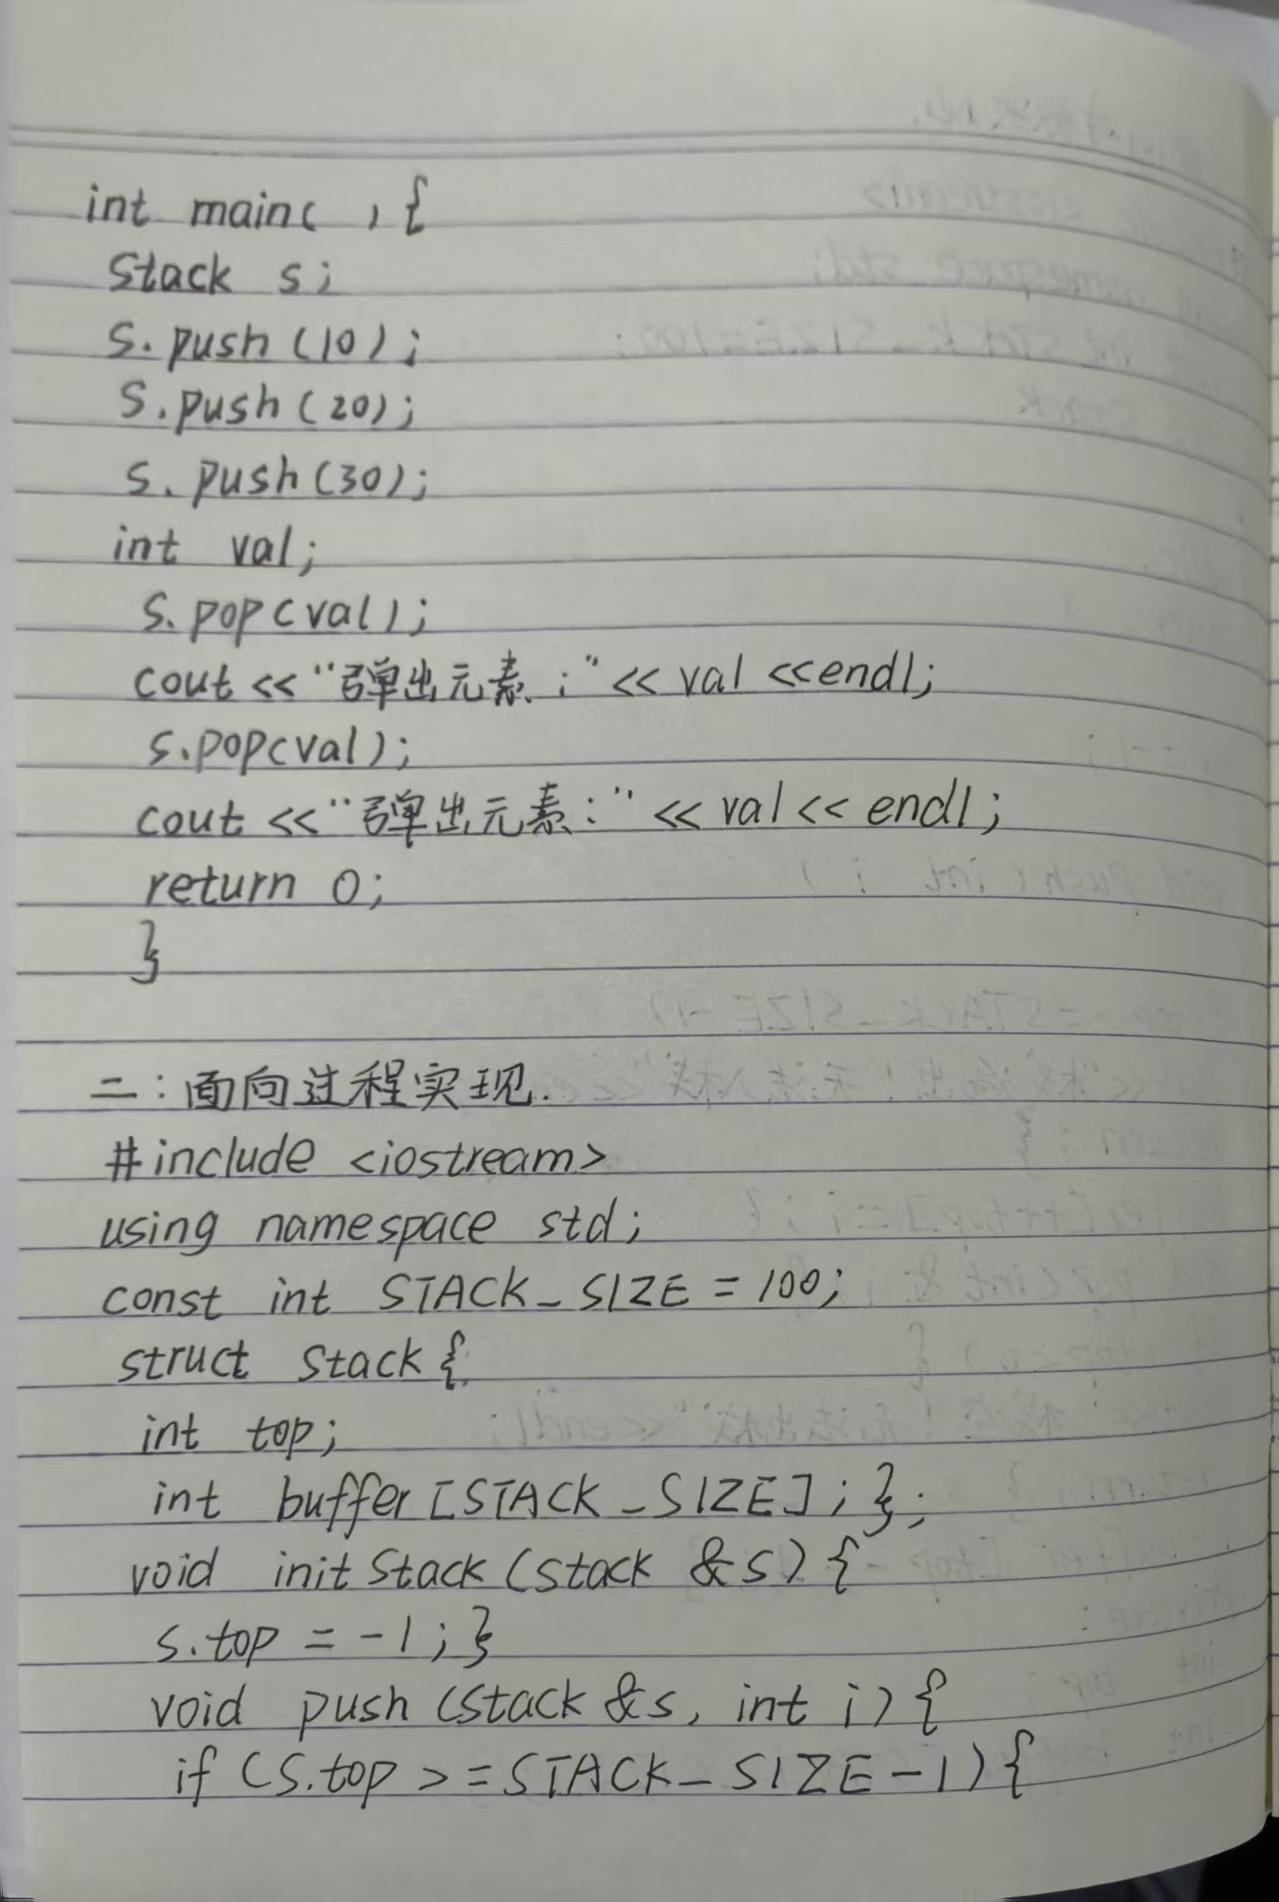 int main( ) {
Stack s;
s.push(10);
s.push(20);
s.push(30);
int val;
s.pop(val);
cout <<"弹出元素:"<< val <<endl;
s.pop(val);
cout <<"弹出元素:"<< val << endl;
return 0;
}
二:面向过程实现.
#include <iostream>
using namespace std;
const int STACK_SIZE = 100;
struct Stack {
int top;
int buffer[STACK_SIZE];};
void init Stack (Stack &s) {
s.top = -1;}
void push (Stack &s, int i) {
if (s.top >= STACK_SIZE-1) {